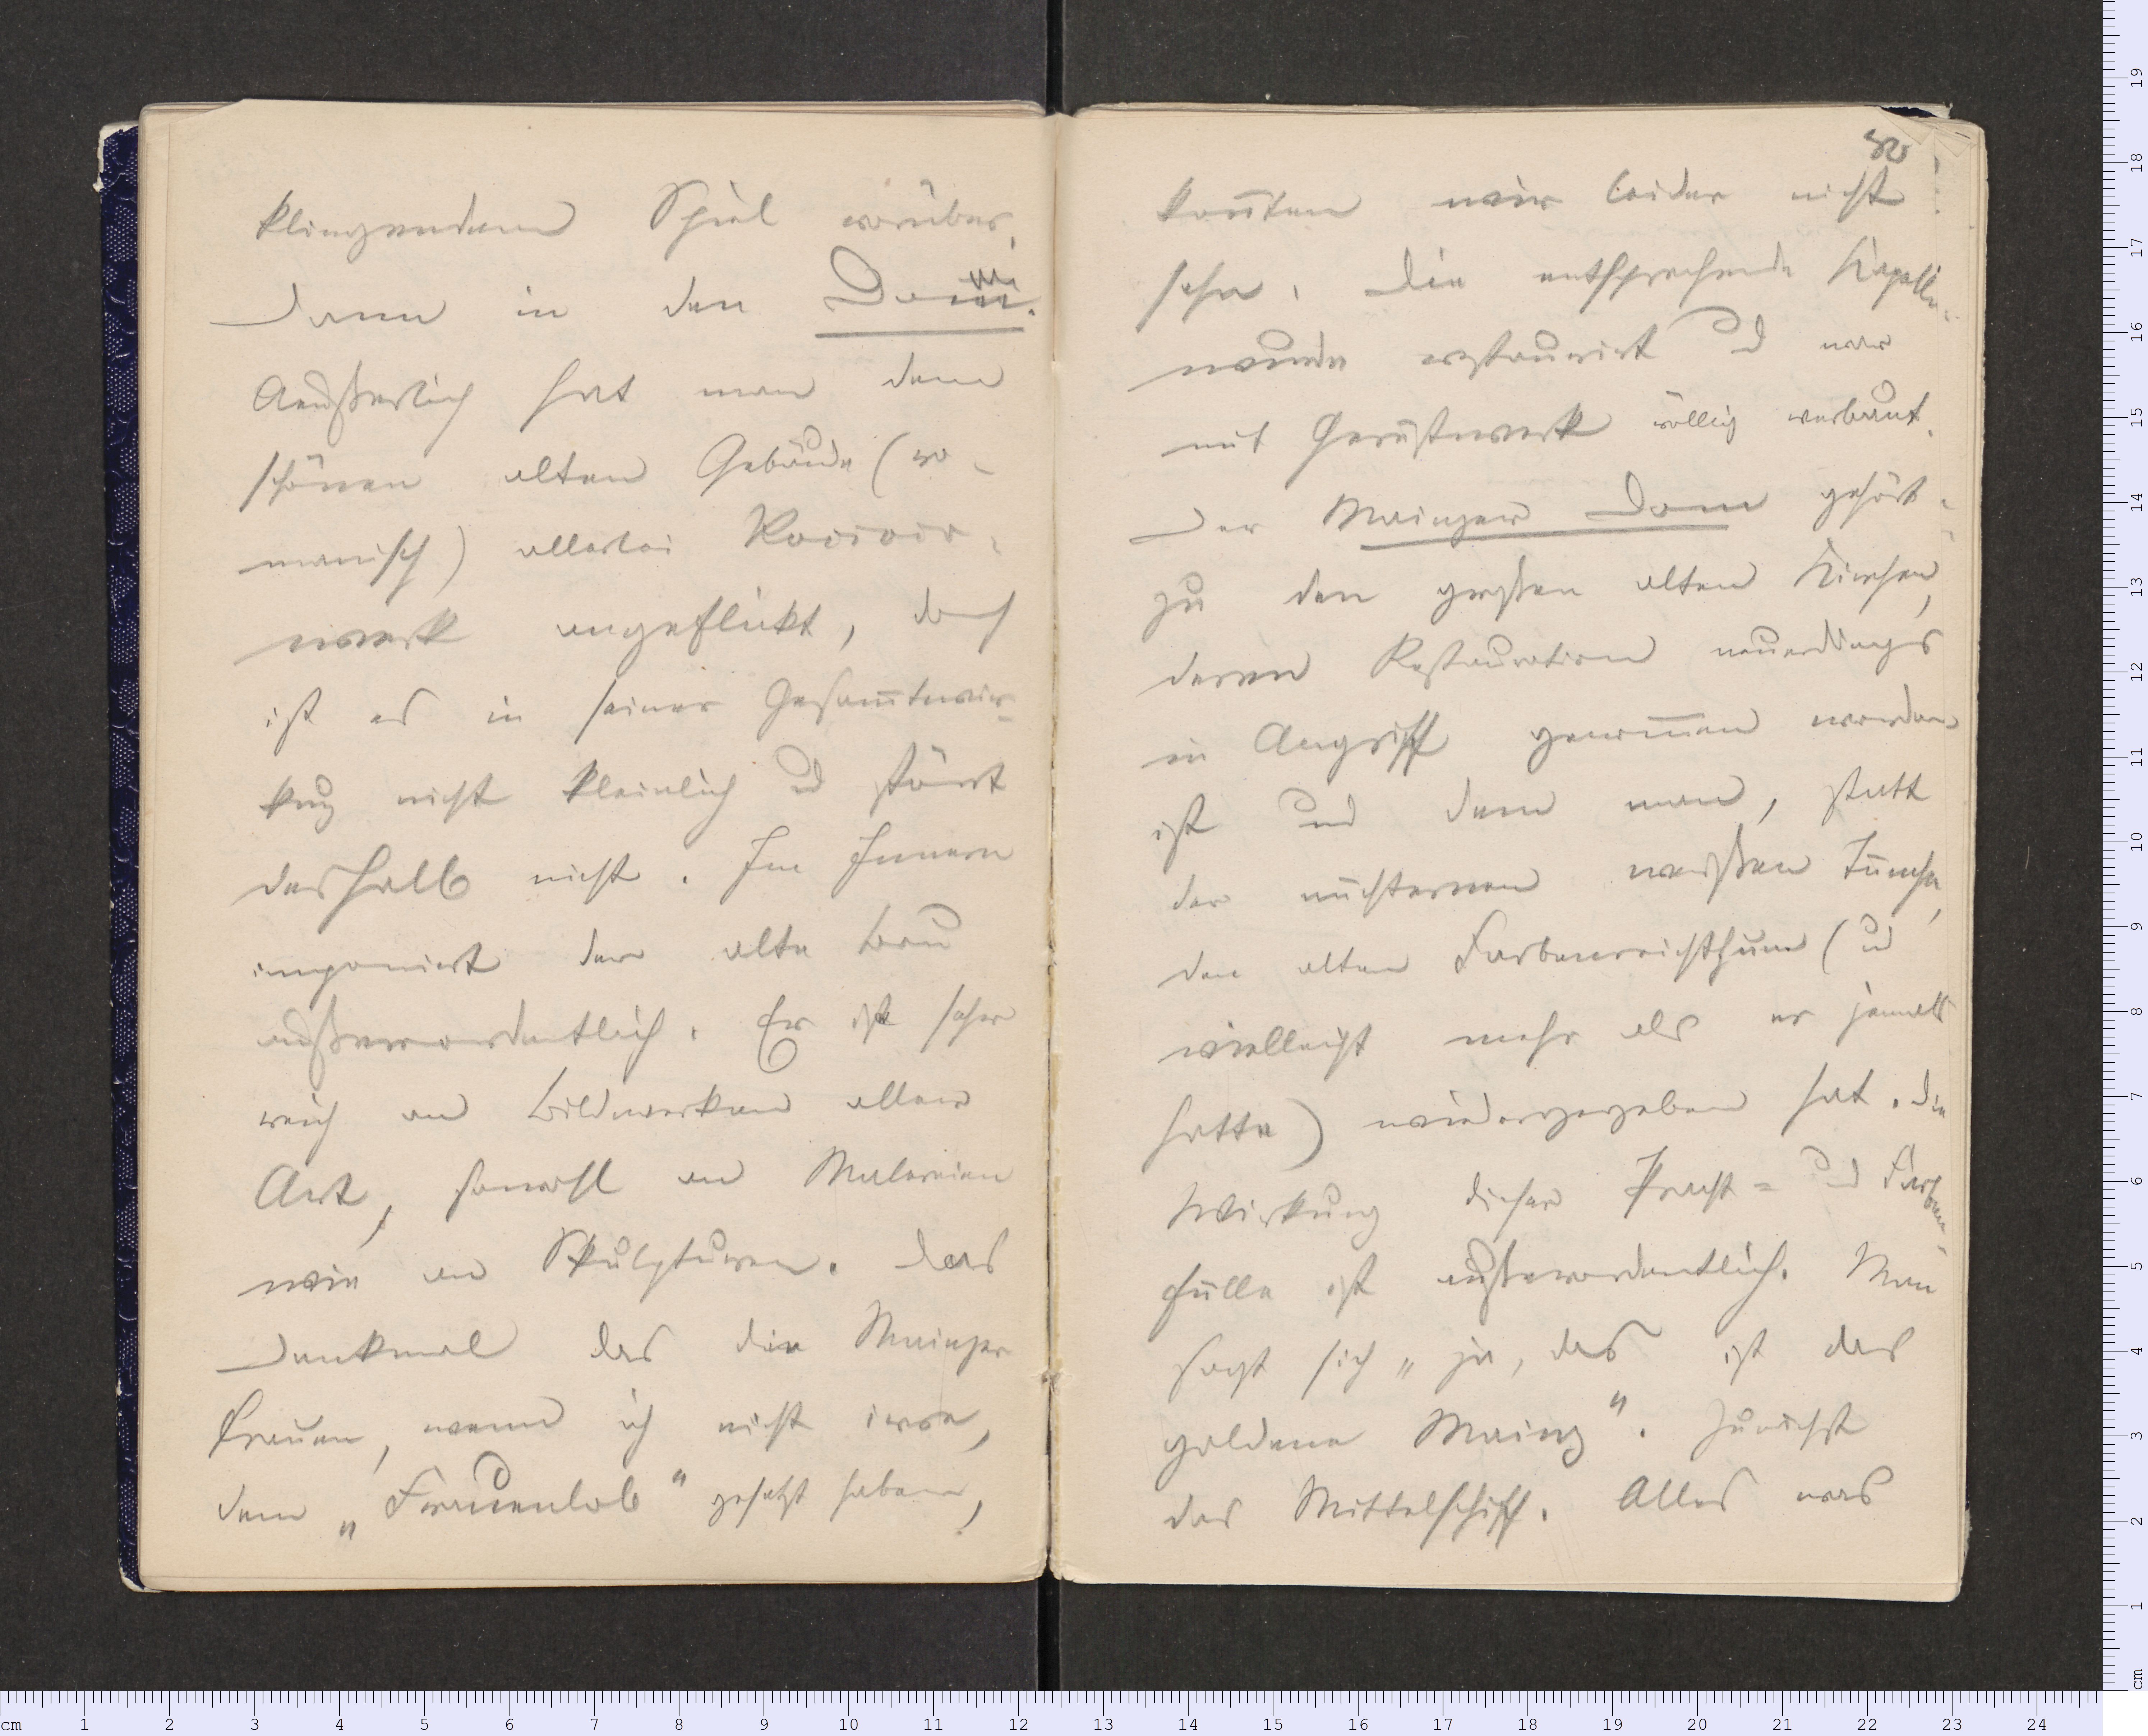 klingendem Spiel vorüber.
Dann in den Dom.
Aeußerlich hat man dem
schönen alten Gebäude (ro-
manisch) allerlei
werk angeflickt, doch
ist es in seiner Gesam̅twir-
kug nicht kleinlich u stört
deshalb nicht. Im Innern
imponirt der alte Bau
außerordentlich. Er ist sehr
reich an Bildwerken aller
Art, sowohl an Malereien
wie an Skulpturen. Das
Denkmal das die Mainzer
Frauen, wenn ich nicht irre,
dem „Frauenlob" gesetzt haben,
konn̅ten wir leider nicht
sehn. Die entsprechende Kapelle
wurde restaurirt u war
mit Gerüstwerk völlig verbaut.
Der Mainzer Dom gehört
zu den großen alten Kirchen,
deren Restauration neuerdings
in Angriff genom̅en worden
ist und dem man, statt
der nüchternen weißen Tünche,
den alten Farbenreichthum (u
vielleicht mehr als er jemals
hatte) wiedergegeben hat. Die
Wirkung dieser Pracht- und Farben-
fülle ist außerordentlich. Man
sagt sich „ja, das ist das
goldene Mainz". Zunächst
das Mittelschiff. Alles was